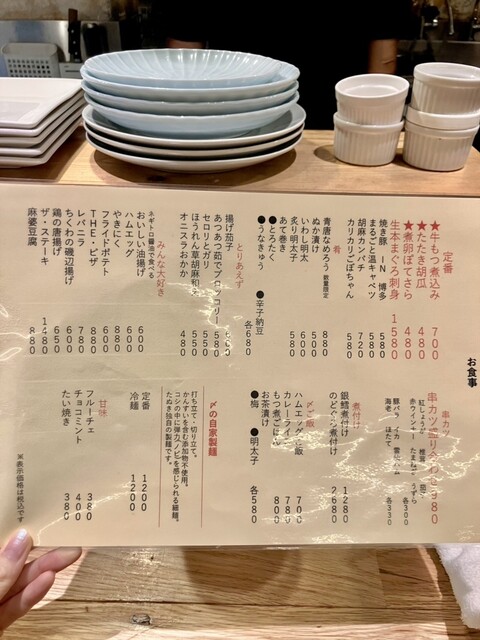 お食事
定番
★牛もつ煮込み 700
★たたき胡瓜 480
★煮卵ぽてさら 480
生本まぐろ刺身 1580
焼き豚 IN 博多 580
まるごと温キャベツ 580
胡麻カンパチ 720
カリカリごぼちゃん 580
肴
青唐なめろう 数量限定 880
ぬか漬け 500
いわし明太 580
炙り明太子 600
あて巻き
●とろたく
●うなきゅう ●辛子納豆 各680
とりあえず
揚げ茄子
あつあつ茹でブロッコリー
セロリとガリ 550
ほうれん草胡麻和え
オニスラおかか 480
みんな大好き
ネギトロ醤油で食べる
おいしい油揚げ 600
ハムエッグ 600
やきにく
フライドポテト 600
THE・ピザ
レバニラ 780
ちくわの磯辺揚げ 600
鶏の唐揚げ 650
ザ・ステーキ 1480
麻婆豆腐 880
串カツ
串カツ 980
紅しょうが 椎茸 茄子
赤ウインナー たまねぎ うずら
各300
豚バラ イカ
海老 ほたて
各330
煮付け
銀鱈煮付け 1280
のどぐろ煮付け 2680
〆ご飯
ハムエッグご飯 700
カレーライス 780
もつ煮ごはん 800
お茶漬け
●梅 ●明太子 各580
〆の自家製麺
打ち立て・切り立て。
かんすいを含む添加物不使用。
コシの中に弾力、ノビを感じられる細麺。
たぬき独自の製麺です。
定番 1200
冷麺 1200
甘味
フルーチェ 380
チョコミント 400
たい焼き 380
※表示価格は税込です